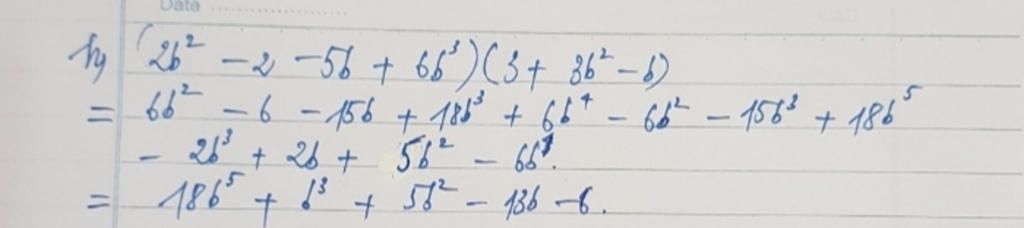 Date
h, (2b² - 2 - 5b + 6b³)(3 + 3b² - b)
= 6b² - 6 - 15b + 18b³ + 6b⁴ - 6b² - 15b³ + 18b⁵
- 2b³ + 2b + 5b² - 6b⁴.
= 18b⁵ + b³ + 5b² - 13b - 6.